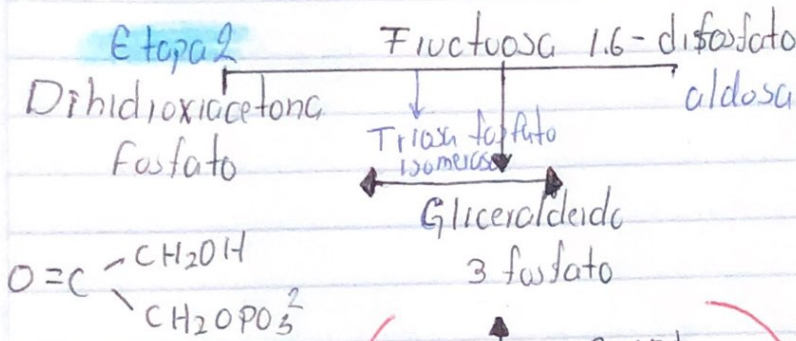 Etapa 2
Fructuosa 1.6-difosfato
Dihidroxiacetona
fosfato
aldosa
Triosa fosfato
isomerosa
Gliceraldeido
3 fosfato
O=C
CH2OH
CH2OPO3 2